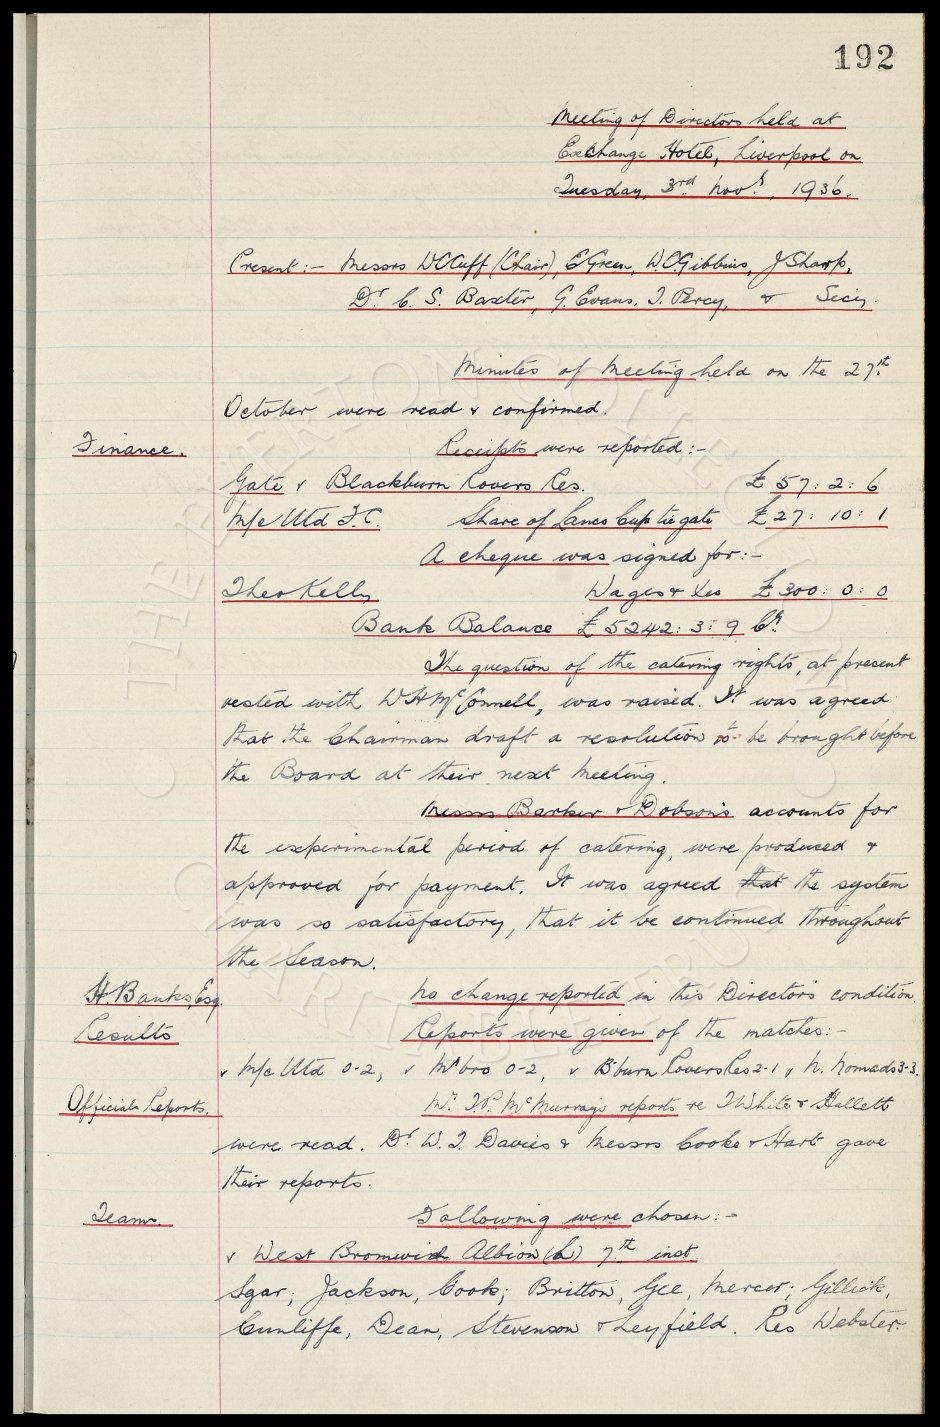 192
Meeting of Directors held at
Exchange Hotel, Liverpool on
Tuesday, 3rd Novr, 1936.
Present:- Messrs WCCuff (Chair), EGreen, W.C.Gibbins, JSharp,
Dr C. S. Baxter, G. Evans. T. Percy, & Secy.
Minutes of Meeting held on the 27th
October were read & confirmed.
Finance.
Receipts were reported:-
Gate v Blackburn Rovers Res. £ 57: 2: 6
M/c Utd F.C. Share of Lancs Cup tie gate £ 27: 10: 1
A cheque was signed for:-
Theo Kelly Wages & Xes £ 300: 0: 0
Bank Balance £ 5242: 3: 9 Cr.
The question of the catering rights, at present
vested with W H McConnell, was raised. It was agreed
that the Chairman draft a resolution to be brought before
the Board at their next Meeting.
Messrs Barker & Dobson's accounts for
the experimental period of catering, were produced &
approved for payment. It was agreed that the system
was so satisfactory, that it be continued throughout
the Season.
H Banks, Esq.
No change reported in this Director's condition.
Results
Reports were given of the matches:-
v M/c Utd 0-2, v M'bro 0-2, v B'burn Rovers Res 2-1 v N. Nomads 3-3.
Officials Reports.
Mr. T.P. McMurray's reports re T White & Hallett
were read. Dr. W. J. Davies & Messrs Cooke & Hart gave
their reports.
Teams.
Following were chosen:-
v West Bromwich Albion (h) 7th inst
Sgar; Jackson, Cook; Britton, Gee, Mercer; Gillick,
Cunliffe, Dean, Stevenson & Leyfield. Res Webster.
THE EVERTON COLLECTION
CHARITABLE TRUST